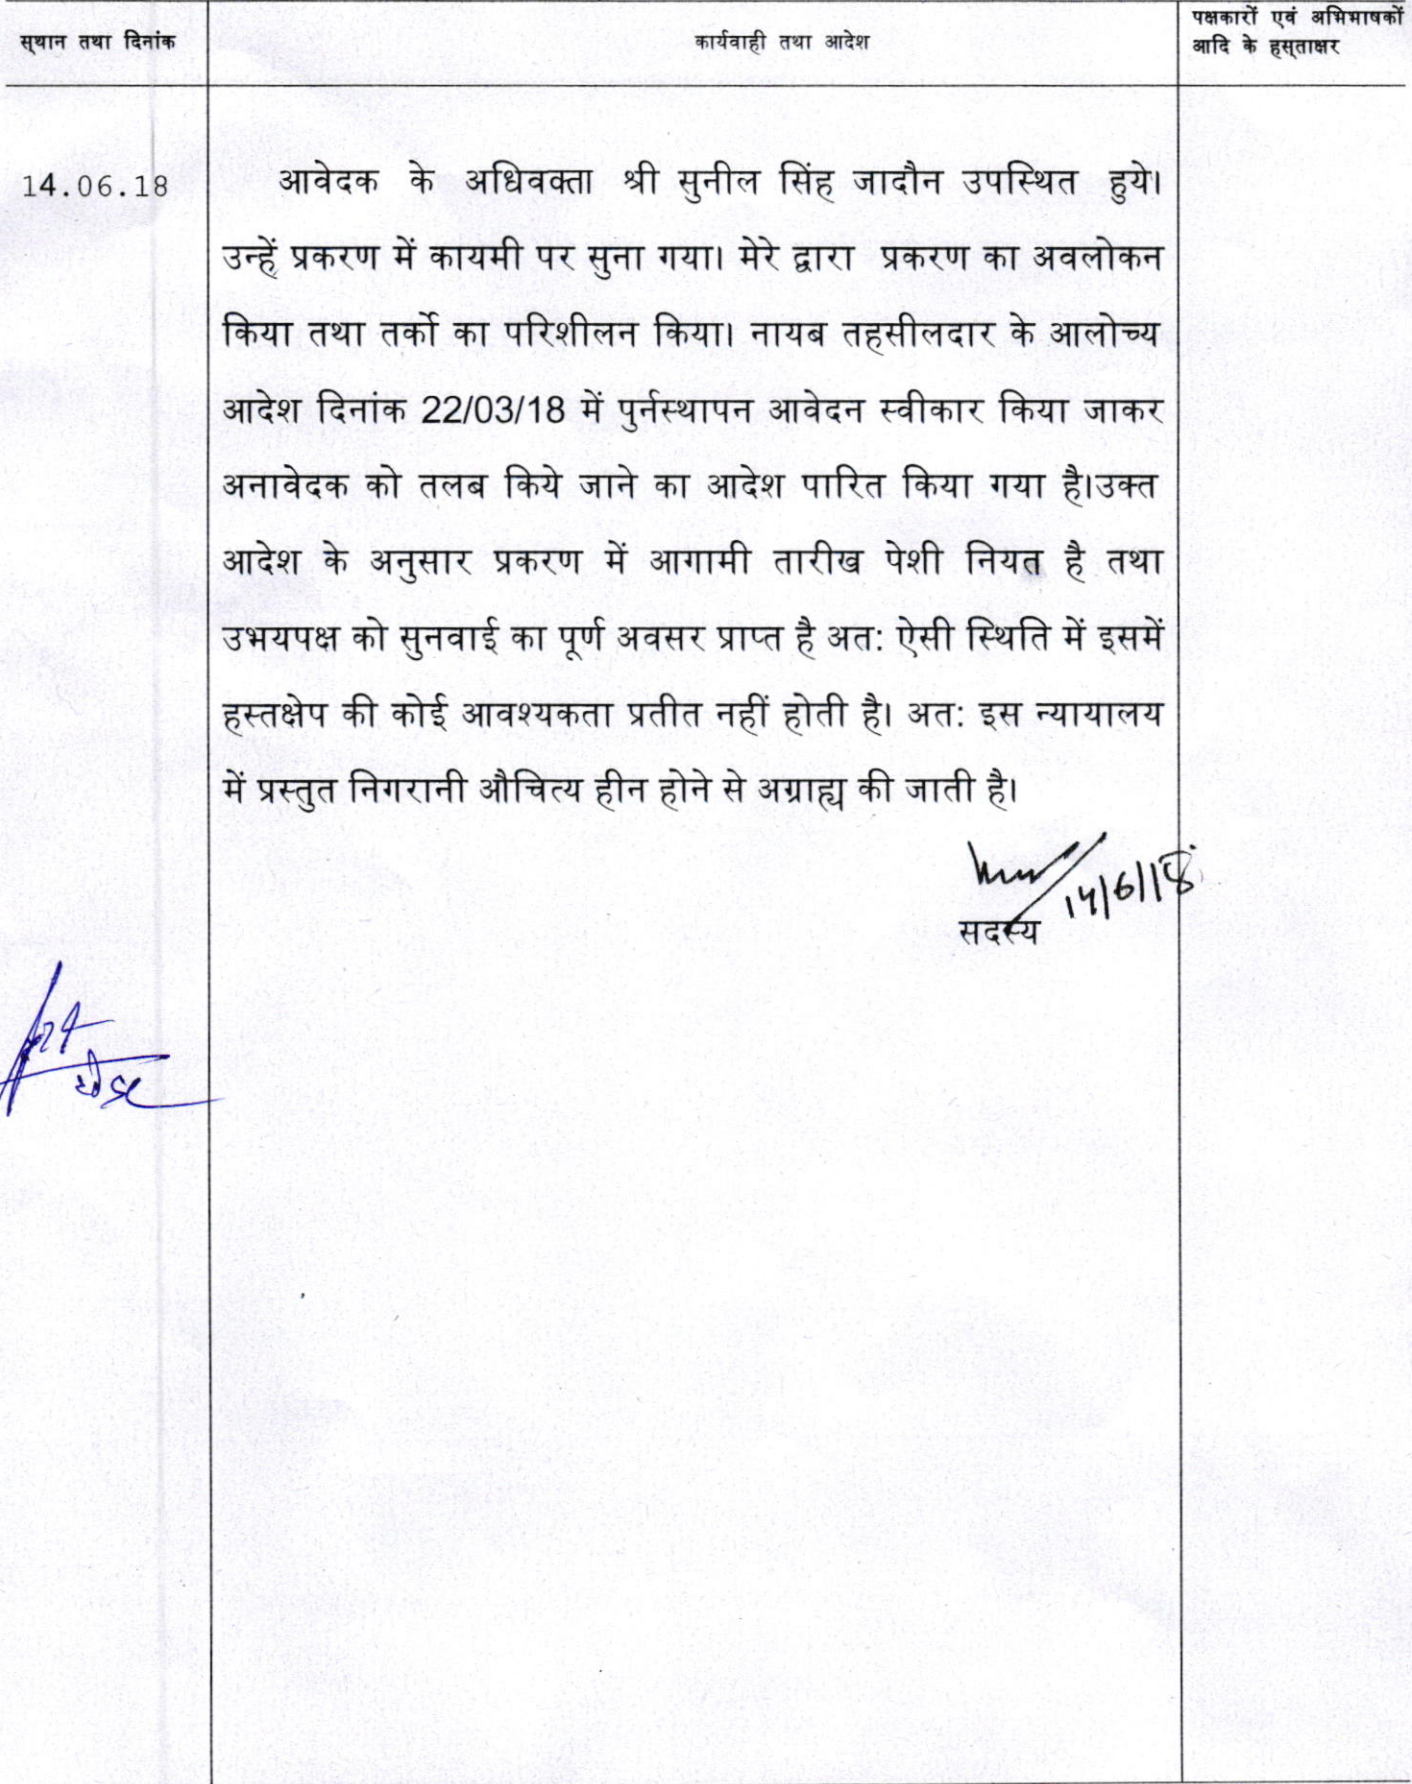 स्थान तथा दिनांक
कार्यवाही तथा आदेश
पक्षकारों एवं अभिभाषकों
आदि के हस्ताक्षर
14.06.18
आवेदक के अधिवक्ता श्री सुनील सिंह जादौन उपस्थित हुये।
उन्हें प्रकरण में कायमी पर सुना गया। मेरे द्वारा प्रकरण का अवलोकन
किया तथा तर्को का परिशीलन किया। नायब तहसीलदार के आलोच्य
आदेश दिनांक 22/03/18 में पुर्नस्थापन आवेदन स्वीकार किया जाकर
अनावेदक को तलब किये जाने का आदेश पारित किया गया है।उक्त
आदेश के अनुसार प्रकरण में आगामी तारीख पेशी नियत है तथा
उभयपक्ष को सुनवाई का पूर्ण अवसर प्राप्त है अत: ऐसी स्थिति में इसमें
हस्तक्षेप की कोई आवश्यकता प्रतीत नहीं होती है। अत: इस न्यायालय
में प्रस्तुत निगरानी औचित्य हीन होने से अग्राह्य की जाती है।
14/6/18
सदस्य